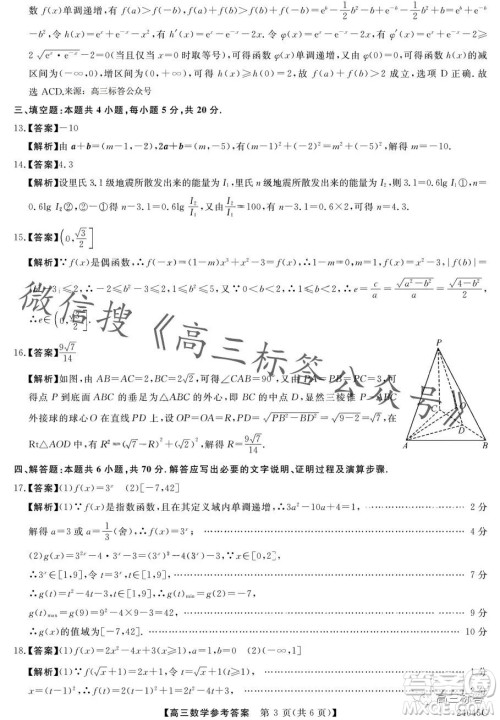 数 f(x) 单调递增,有 f(a)+f(b)>f(b)+f(-b)=e^b-\frac{1}{2}b^2-b+e^{-b}-\frac{1}{2}b^2+b=e^b+e^{-b}
-b^2,令 h(x)=e^x+e^{-x}-x^2,有 h'(x)=e^x-e^{-x}-2x,令 φ(x)=e^x-e^{-x}-2x,有 φ'(x)=e^x+e^{-x}-2≥
2\sqrt{e^x·e^{-x}}-2=0(当且仅当 x=0 时取等号),可得函数 φ(x)单调递增,又由 φ(0)=0,可得函数 h(x)的减
区间为(-∞,0),增区间为(0,+∞),可得 h(x)≥h(0)=2,故 f(a)+f(b)>2 成立,选项 D 正确.故
选 ACD.来源:高三标答公众号
三、填空题:本题共 4 小题,每小题 5 分,共 20 分.
13.【答案】-10
【解析】由 a+b=(m-1,-2),2a+b=(m,-5),有(m-1)^2+(-2)^2=m^2+(-5)^2,解得 m=-10.
14.【答案】4.3
【解析】设里氏 3.1 级地震所散发出来的能量为 I_1,里氏 n 级地震所散发出来的能量为 I_2,则 3.1=0.6lg I_1①,n=
0.6lg I_2②,②-①得 n-3.1=0.6lg \frac{I_2}{I_1},又由\frac{I_2}{I_1}=100,有 n-3.1=0.6×2,可得 n=4.3.
15.【答案】(0,\frac{\sqrt{3}}{2}]
【解析】∵f(x)是偶函数,∴f(-x)=(m-1)x^3+x^2-3=f(x),∴1-m=0,m=1,f(x)=x^2-3,|f(b)|=
3|≤2,∴-2≤b^2-3≤2,1≤b^2≤5.又∵0<b<2,∴1≤b<2,∴e=\frac{c}{a}=\frac{\sqrt{a^2-b^2}}{a}=\frac{\sqrt{4-b^2}}{2},
∴e∈(0,\frac{\sqrt{3}}{2}].
16.【答案】\frac{9\sqrt{7}}{14}
【解析】如图,由 AB=AC=2,BC=2\sqrt{2},可得∠CAB=90°,又由 PA=PB=PC,可
得点 P 到底面 ABC 的垂足为△ABC 的外心,即 BC 的中点 D,显然三棱锥 P-ABC
外接球的球心 O 在直线 PD 上,设 OP=OA=R,PD=\sqrt{PB^2-BD^2}=\sqrt{9-2}=\sqrt{7},在
Rt△AOD 中,有 R^2=(\sqrt{7}-R)^2+(\sqrt{2})^2,解得 R=\frac{9\sqrt{7}}{14}.
P
C
D
A
B
四、解答题:本题共 6 小题,共 70 分.解答应写出必要的文字说明、证明过程及演算步骤.
17.【答案】(1)f(x)=3^x (2)[-7,42]
【解析】(1)∵f(x)是指数函数,且在其定义域内单调递增,∴3a^2-10a+4=1, 2 分
解得 a=3 或 a=\frac{1}{3}(舍),∴f(x)=3^x. 4 分
(2)g(x)=3^{2x}-4·3^x-3=(3^x)^2-4·3^x-3,∵x∈[0,2],
∴3^x∈[1,9],令 t=3^x,∴t∈[1,9], 7 分
∴g(t)=t^2-4t-3,∴g(t)_{min}=g(2)=-7,
g(t)_{max}=g(9)=9^2-4×9-3=42,
∴g(x)的值域为[-7,42]. 10 分
18.【答案】(1)f(x)=2x^2-4x+3(x≥1) (2)(-∞,1]
【解析】(1)∵f(\sqrt{x}+1)=2x+1,∴f(\sqrt{x}+1)=2(\sqrt{x})^2+1,
【高三数学参考答案 第 3 页(共 6 页)】
微信搜《高三标答公众号》
高三标答